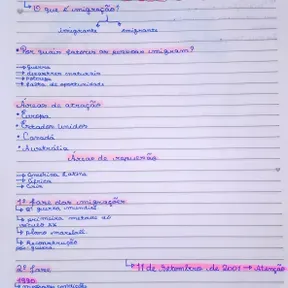 ↳ O que é imigração?
Imigrante emigrante
• Por quais fatores as pessoas imigram?
→ Guerra
→ desastres naturais
→ Pobreza
→ falta de oportunidade
Áreas de atração
• Europa
• Estados Unidos
• Canadá
• Austrália
Áreas de repulsão
→ América Latina
→ África
→ Ásia
1º fase das imigrações
↳ 2º guerra mundial
↳ primeira metade do
século XX
↳ plano marshall
↳ Reconstrução
pós-guerra
2º fase ↳ 11 de setembro de 2001 → Atenção
1990